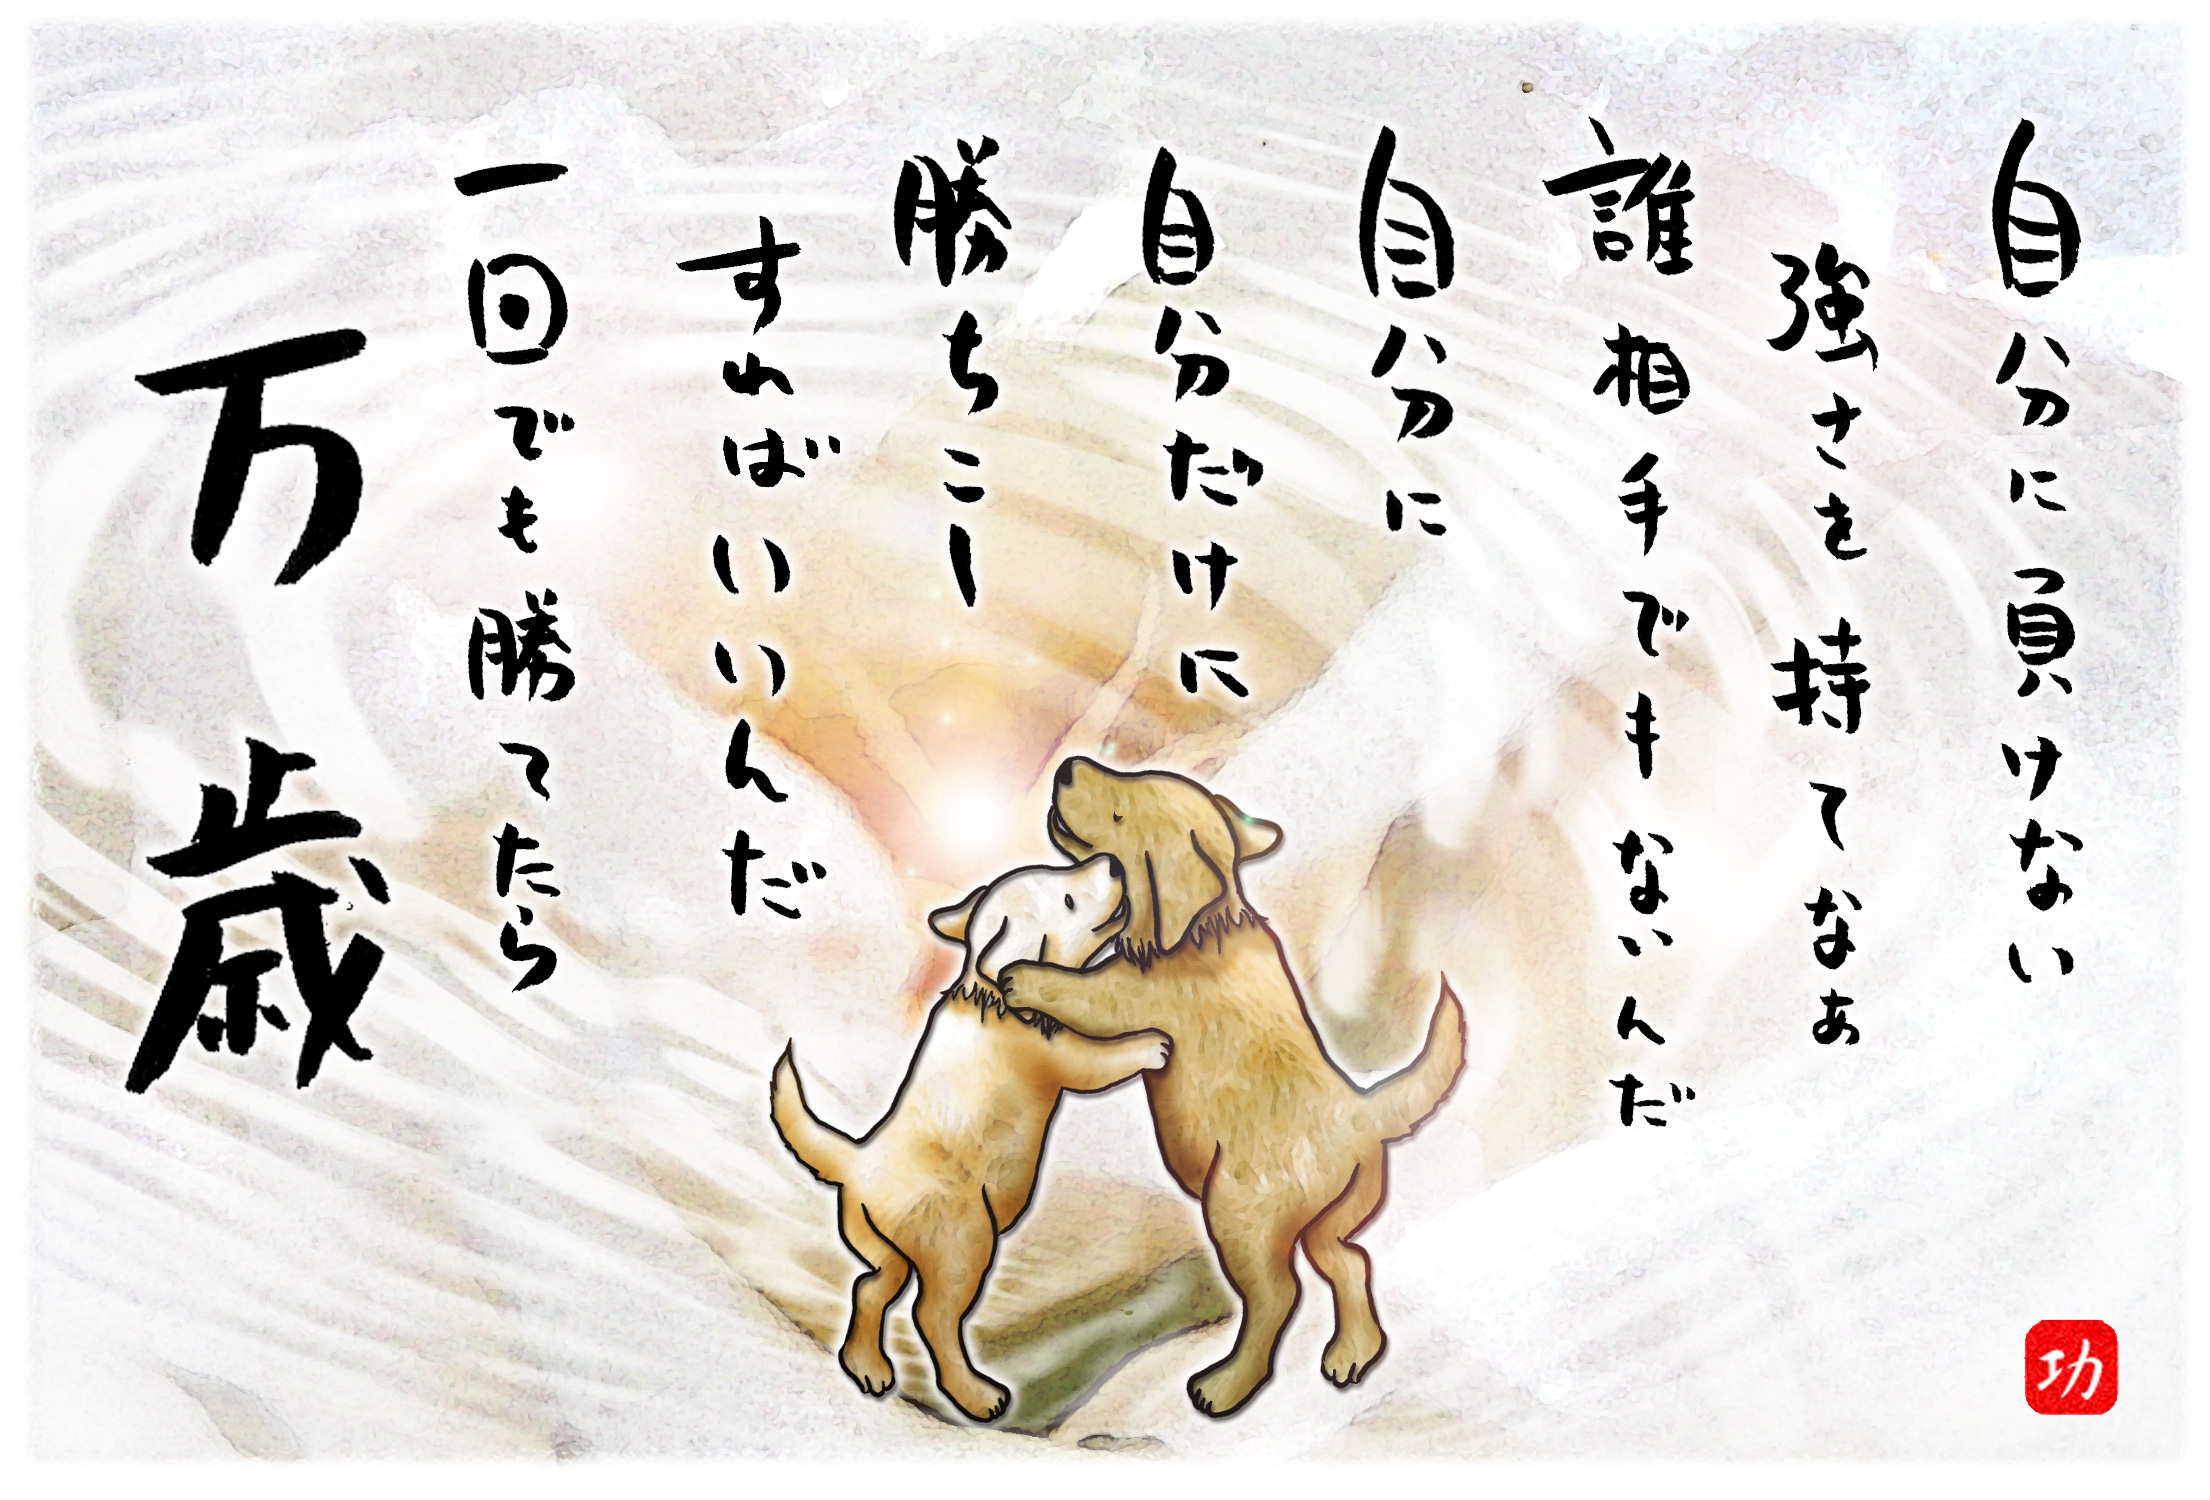 自分に負けない
強さを持てなぁ
誰相手でもないんだ
自分に
自分だけに
勝ちこし
すればいいんだ
一回でも勝てたら
万歳
功